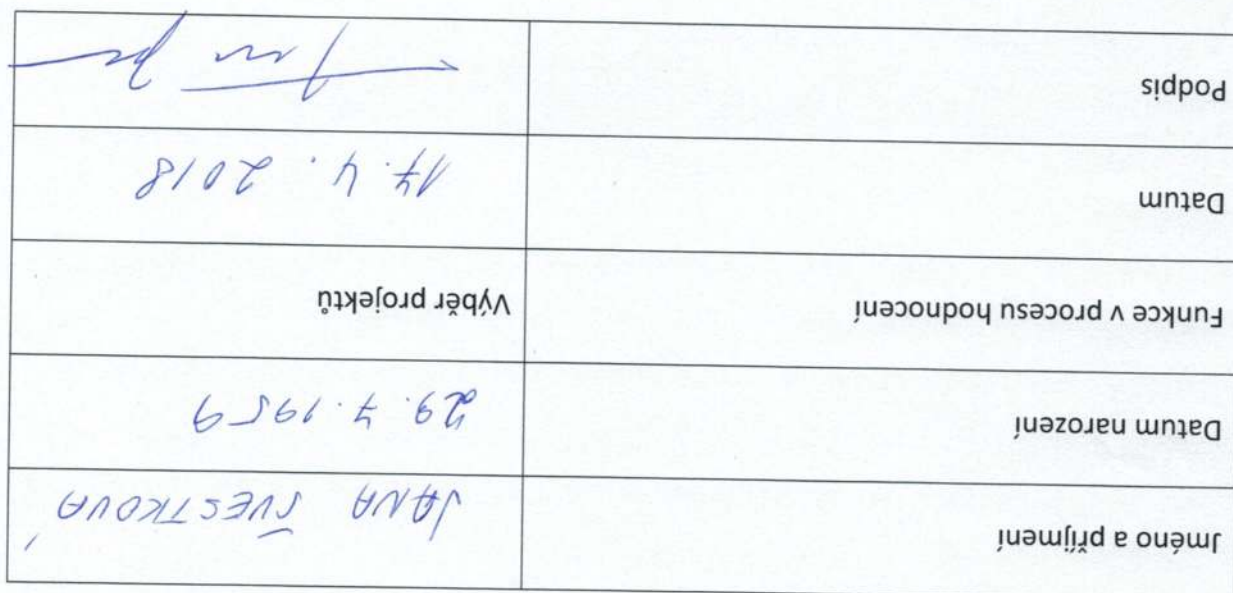 Jméno a příjmení JANA ŠVESTKOVÁ
Datum narození 29.7.1959
Funkce v procesu hodnocení Výběr projektů
Datum 17.4.2018
Podpis